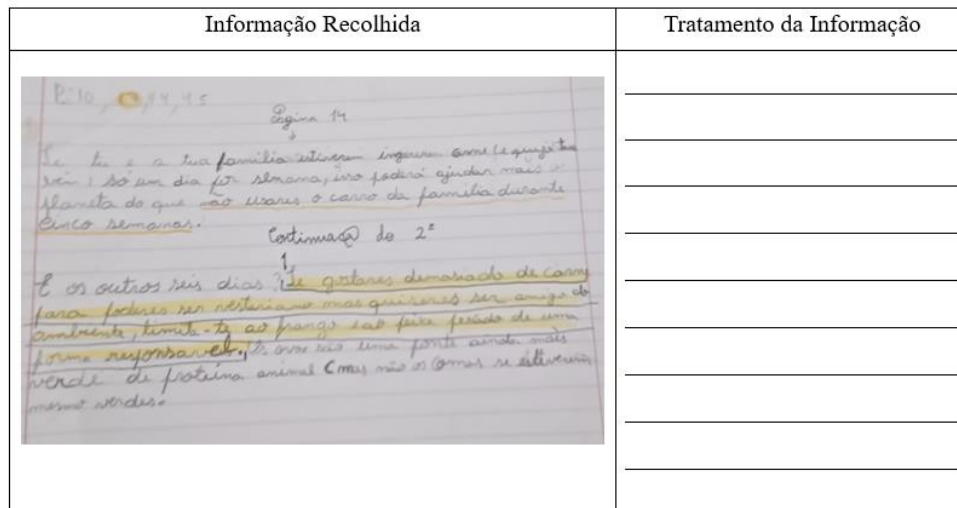 Informação Recolhida
Tratamento da Informação
P. 10, 94, 95
Página 14
Se tu e a tua família estiverem ingerirem carne (e queijo
) só um dia por semana, isso poderá ajudar mais o
planeta do que não usares o carro da família durante
cinco semanas.
Continuação do 2º
E os outros seis dias? Se gostares demasiado de carne
para poderes ser vestariano mas quiseres ser amigo do
ambiente, limita-te ao frango e ao peixe pescado de uma
forma responsavel. Os ovos são uma fonte ainda mais
verde de proteína animal (mas não os comas se estiverem
mesmo verdes.